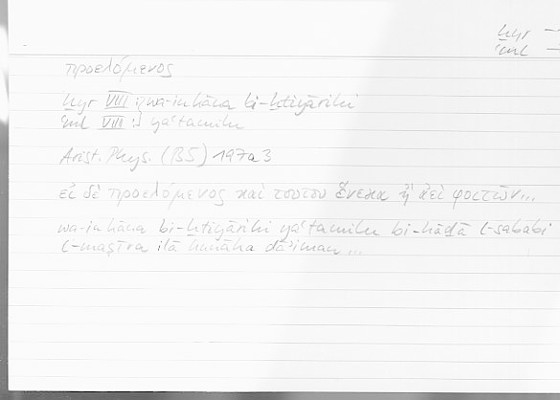 ḫyr
ʿml
προελόμενος
ḫyr VIII : wa-in kāna bi-ḫtiyārihi
ʿml VIII : yaʿtamilu
Arist. Phys. (B5) 197a3
εἰ δὲ προελόμενος καὶ τούτου ἕνεκα ἢ ἀεὶ φοιτῶν...
wa-in kāna bi-ḫtiyārihi yaʿtamilu bi-hāḏā l-sababi
l-maṣīra ilā hunāka dāʾiman...